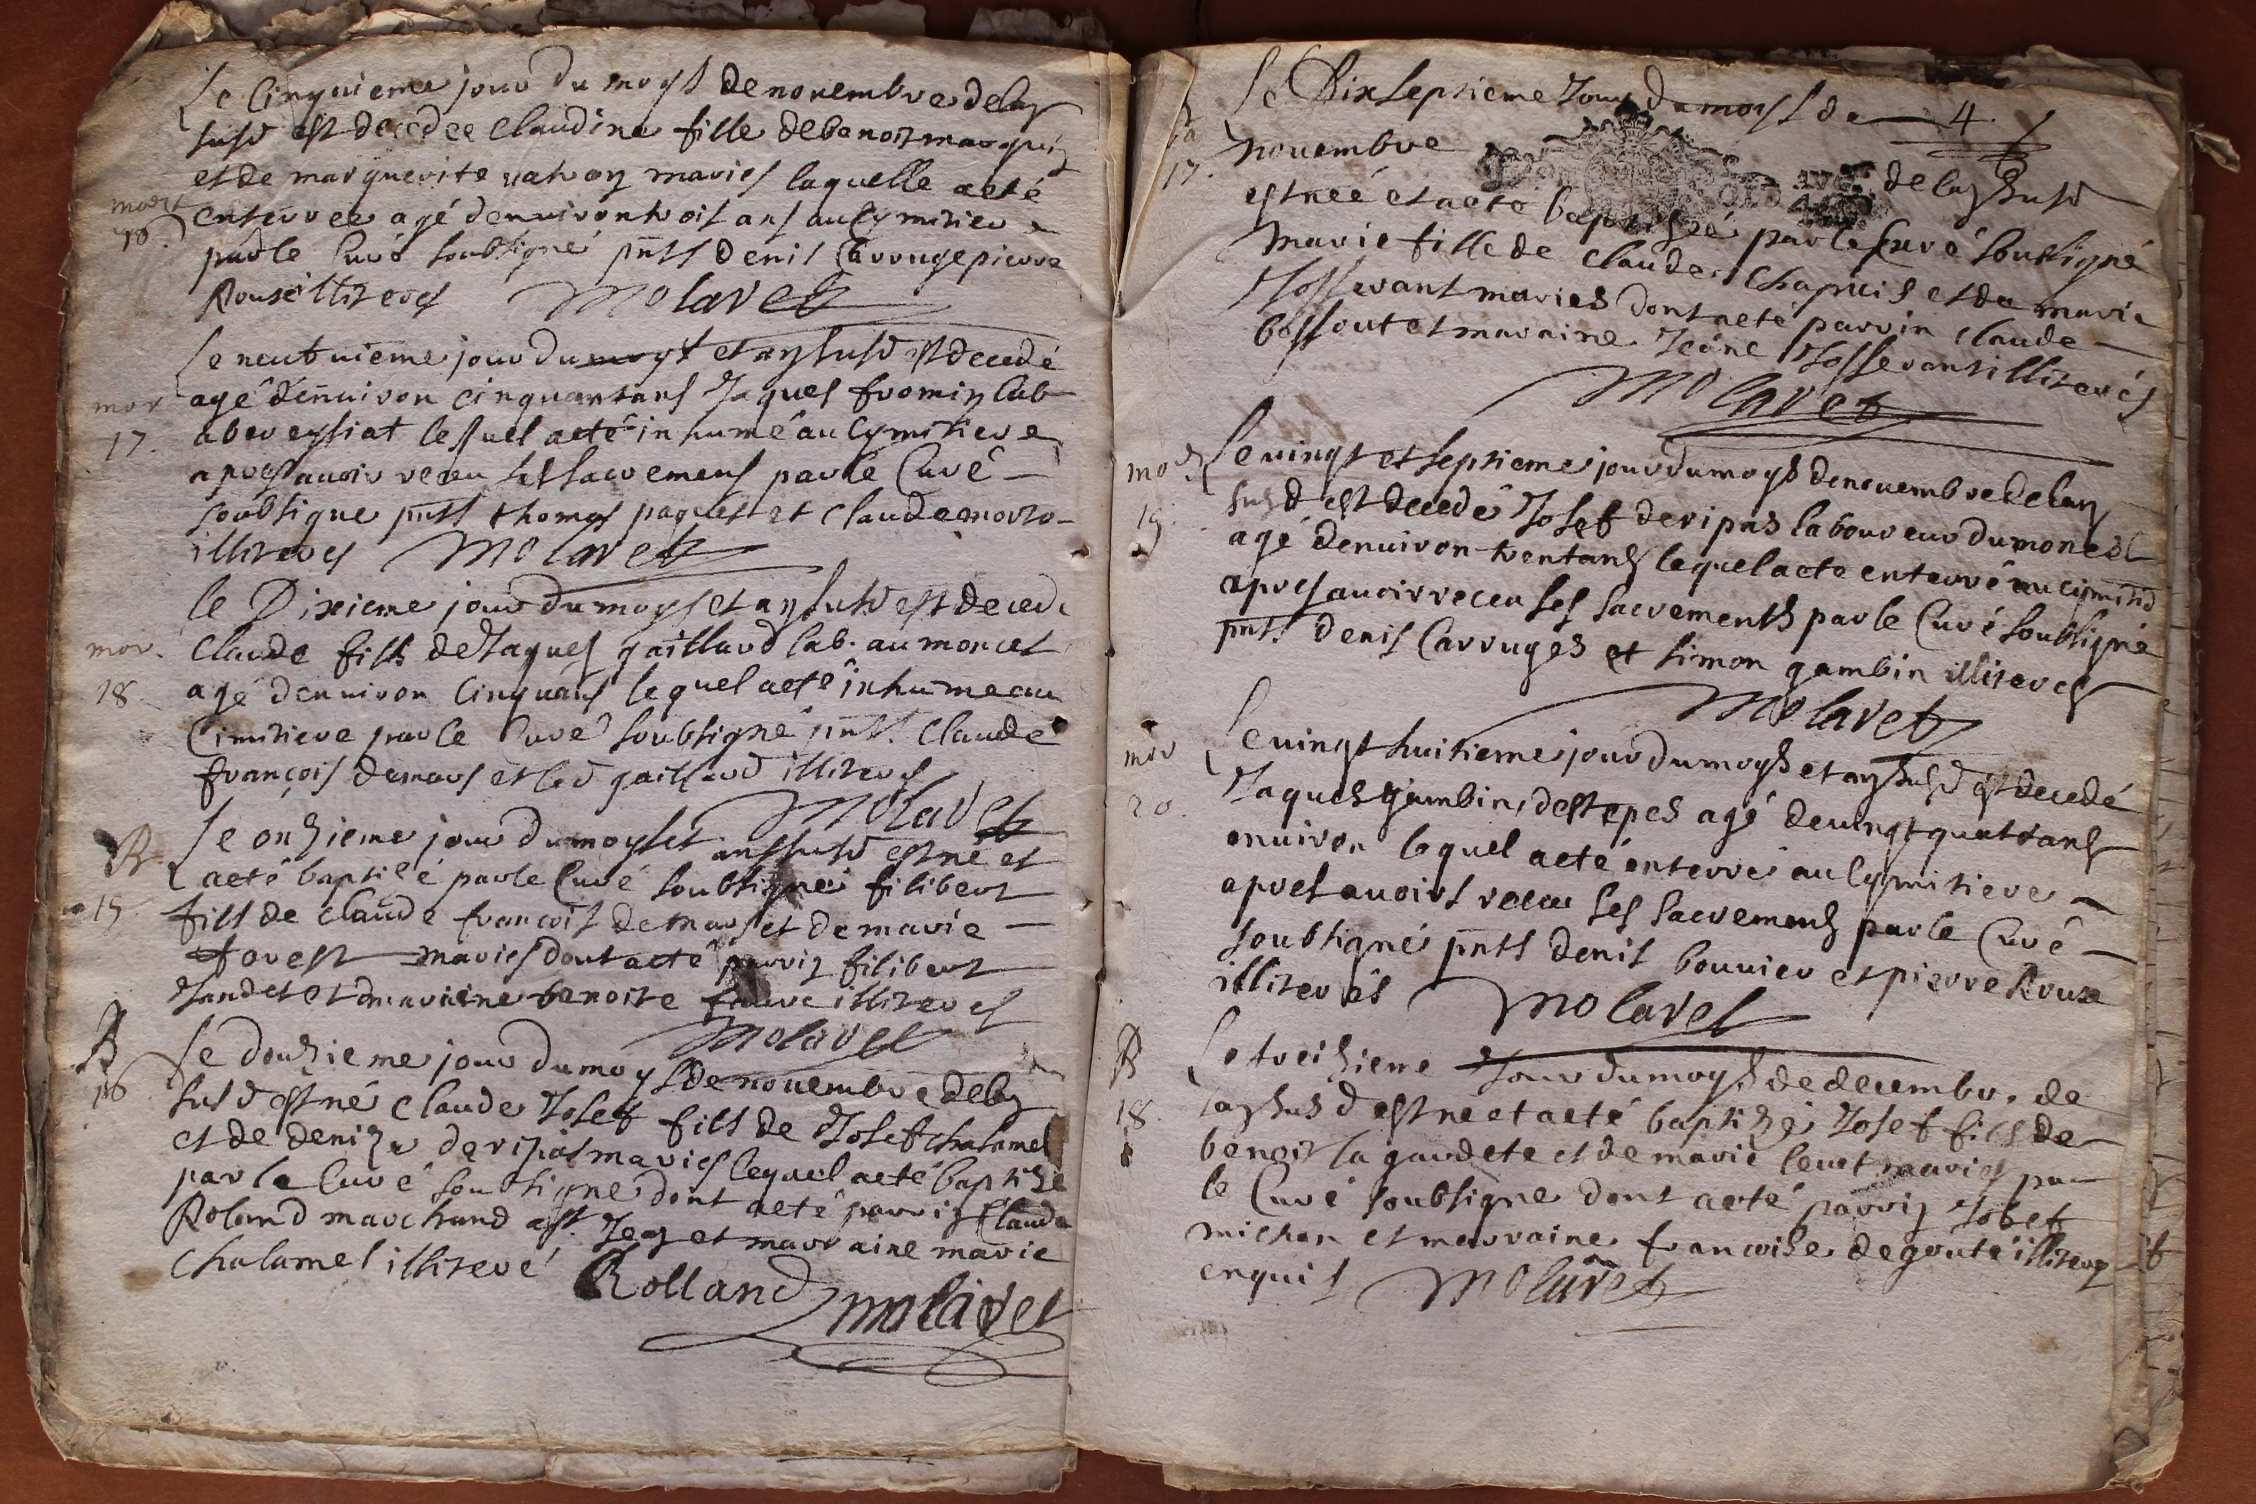 Le Cinquieme jour du moys de novembre de lan
susd est decedee claudine fille de benoit
et de marguerite maries laquelle a eté
mort
enterree agé denuiron trois ans au Cymitiere
16.
par le Curé soubsigné pnts denis Carruge pierre
illiteres Molaret
Le neufuieme jour du moys et an susd est decedé
mor
agé denuiron cinquantans Jaques fromin lab
17.
lequel a eté inhumé au Cymitiere
apres auoir receu ses sacremens par le Curé
soubsigne pnts thomas paquet et claude
illiteres Molaret
le Dixieme jour du moys et an susd est decede
mor.
Claude fils de Jaques gaillard lab. au moncet
18
agé denuiron Cinquans lequel a eté inhume au
Cimitiere par le Curé soubsigné pnts. Claude
françois demars et led gaillard illiteres
Molaret
B
Le onzieme jour du moys et an susd est né et
a eté baptisé par le Curé soubsigné filibert
15
fils de Claude francois demars et de marie
forest maries dont a eté parrin filibert
et maraine benoite illiteres
Molaret
B
Le douzieme jour du moys de novembre de lan
16
susd est né Claude Josef fils de Josef chalamel
et de denize deripas maries lequel a eté baptizé
par le Curé soubsigné dont a eté parrin Claude
Roland marchand et marraine marie
Chalamel illiteré
Rolland Molaret
Le Dixseptieme Jour du moys de 4.
17.
novembre de lan susd
est neé et a eté baptisée par le Curé soubsigné
Marie fille de Claude Chapuis et de marie
Josserant maries dont a eté parrin Claude
bossout et maraine Jeane Josserant illiterés
Molaret
mor
Le vingt et septieme jour du moys de nouembre de lan
19
susd est decedé Josef deripas laboureur du moncet
agé denuiron trentans lequel a eté enterré au cymitie
apres auoir receu ses sacrements par le Curé soubsigné
pnts. denis Carruges et simon gambin illiteres
Molaret
mor
Le vingt huitieme jour du moys et an susd est decedé
20.
Jaques gambin destepes agé de vingt quattrans
enuiron lequel a eté enterré au Cymitiere
apres auoirs receu ses sacremens par le Curé
soubsigné pnts denis bouuier et pierre Roux
illiterés Molaret
B
Le treizieme Jour du moys de decembre de
18
lan susd est ne et a eté baptizé Josef fils de
benoit lagaudete et de marie leuet maries par
le Curé soubsigne dont a eté parrin Josef
michon et marraine francoise degouté illiteres
enquis Molaret